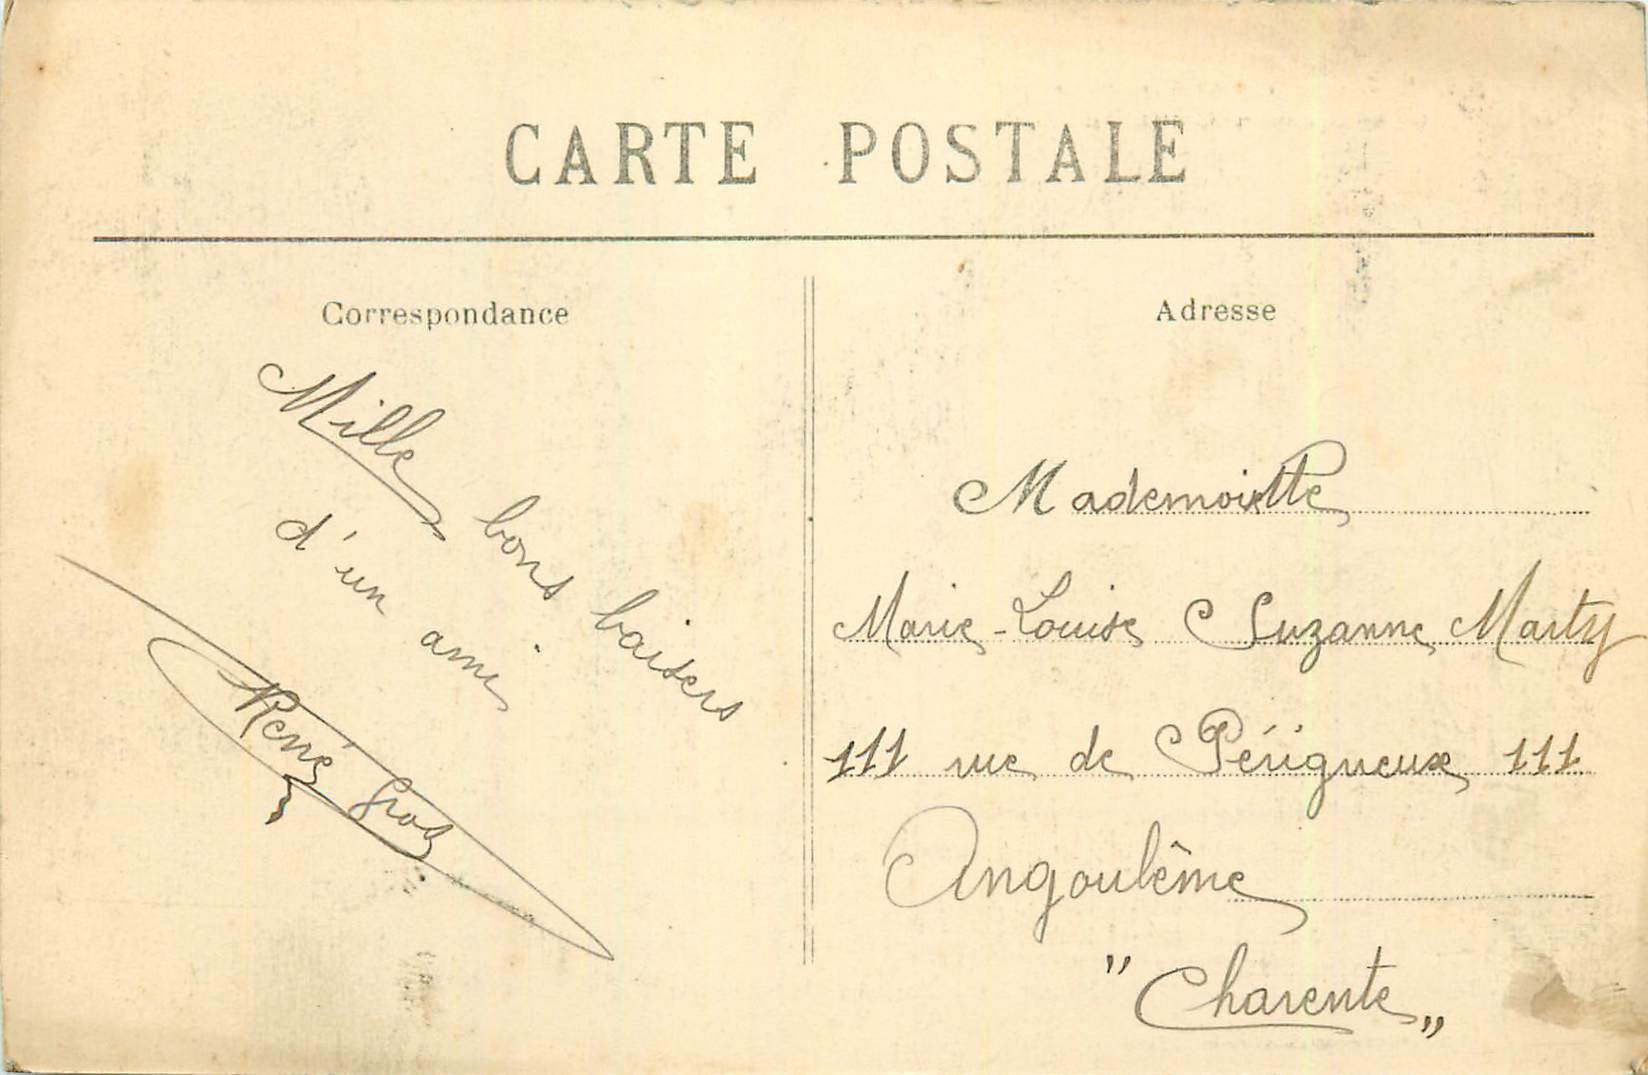 CARTE POSTALE
Correspondance
Mille bons baisers
d'un ami
René Gros
Adresse
Mademoiselle
Marie-Louise Suzanne Marty
111 rue de Périgueux 111
Angoulême
"Charente"